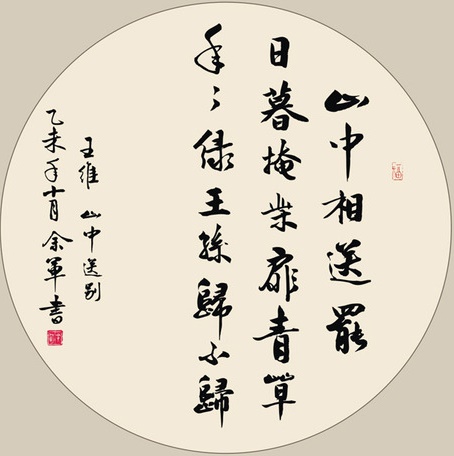 山中相送罷
日暮掩柴扉青草
年〻緑王孫歸不歸
王維 山中送別
乙未年十月余軍書